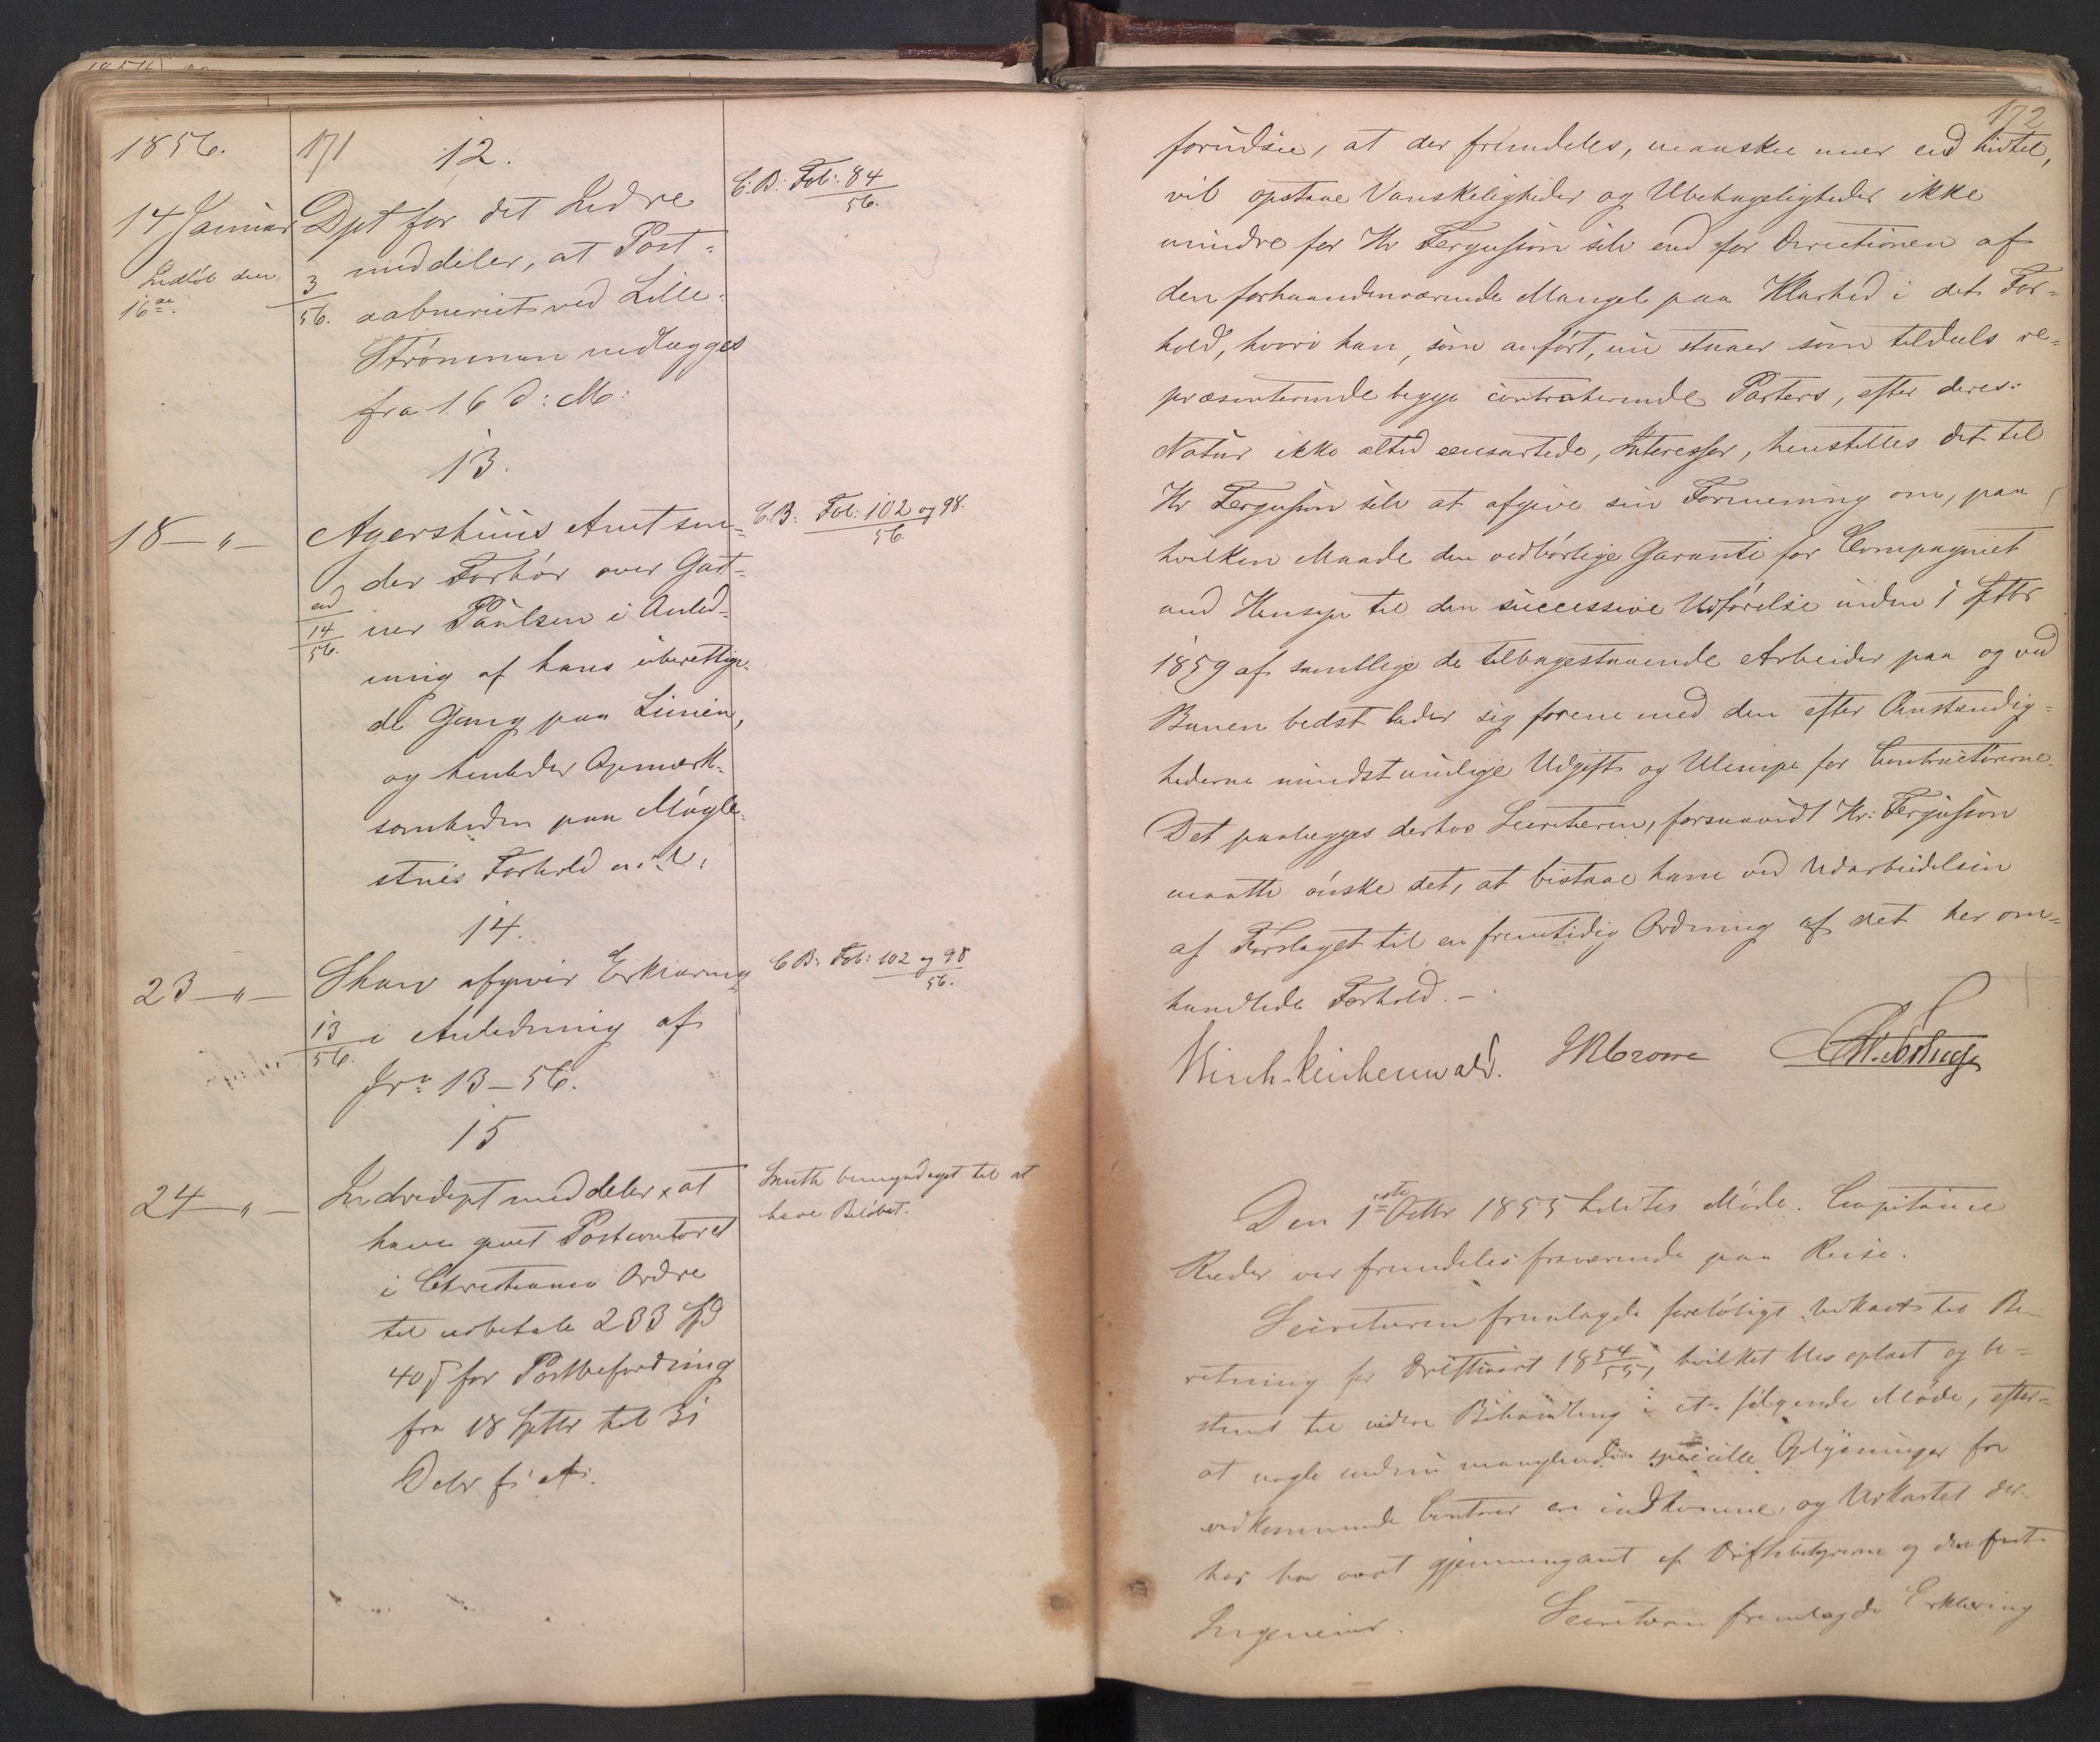 1856.
171
12.
14 Januar
Indløb den
16de.
Dpt for det Indre
3
56.
meddeler, at Post-
aabneriet ved Lille-
Strømmen nedlægges
fra 16 d: M:
C: B: Fol: 84
56.
13.
18 — " —
Agershuus Amt sen-
der Forhør over Gart-
ad
14
56.
ner Paulsen i Anled-
ning af hans uberettige-
de Gang paa Linien,
og henleder Opmærk-
somheden paa
Forhold m: V:
C. B: Fol: 102 og 98.
56
14.
23 — " —
afgiver Erklæring
13
56.
i Anledning af
Jrn 13-56.
C B: Fol: 102 og 98
56.
15
24 — " —
Indredept meddeler at
have givet Postcontoret
i Christiania Ordre
til udbetale 233 Spd
40 s for Postbefordring
fra 18 Septbr til 31
Decbr f: A:
Smith bemyndiget til at
hæve Beløbet.
172
forudsee, at der fremdeles, maaskee meer end hidtil,
vil opstaae Vanskeligheder og Ubehageligheder ikke
mindre for Hr Fergusson selv end for Directionen af
den forhaandenværende Mangel paa Klarhed i det For-
hold, hvori han, som anført, nu staaer som tildeels re-
præsenterende begge contraherende Parters, efter deres
Natur ikke altid eensartede, Interesser, henstilles det til
Hr Fergusson selv at afgive sin Formening om, paa
hvilken Maade den vedbørlige Garanti for Compagniet
med Hensyn til den successive Udførelse inden 1 Septbr
1859 af samtlige de tilbagestaaende Arbeider paa og ved
Banen bedst lader sig forene med den efter Omstændig-
hederne mindst mulige Udgift og Ulempe for Contractørerne.
Det paalægges derhos Secretæren, forsaavidt Hr: Fergusson
maatte ønske det, at bistaae ham ved Udarbeidelsen
af Forslaget til en fremtidig Ordning af det her om-
handlede Forhold. —
Birch-Reichenwald. JRCrowe
Den 1ste Octbr 1855 holdtes Møde. Capitaine
Ræder var fremdeles fraværende paa Reise.
Secretæren fremlagde foreløbigt Udkast til Be-
retning for Driftsaaret 1854/55, hvilket blev oplæst og be-
stemt til videre Behandling i et følgende Møde, efter-
at nogle endnu manglende specielle Oplysninger fra
vedkommende Contoir ere indkomne, og Udkastet der-
hos har været gjennemgaaet af Driftsbestyreren og den fast-
Ingenieur. Secretæren fremlagde Erklæring